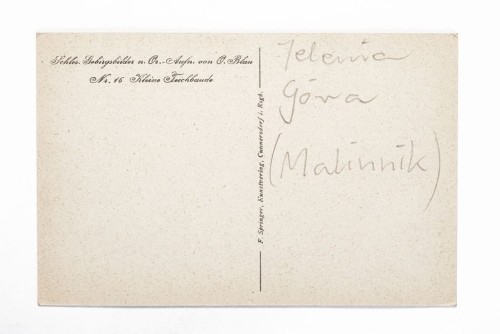 Schles. Gebirgsbilder n. Or.-Aufn. von O. Blau
Nr. 16 Kleine Teichbaude
F. Springer, Kunstverlag, Cunnersdorf i. Rsgb.
Jelenia
Góra
(Malinnik)